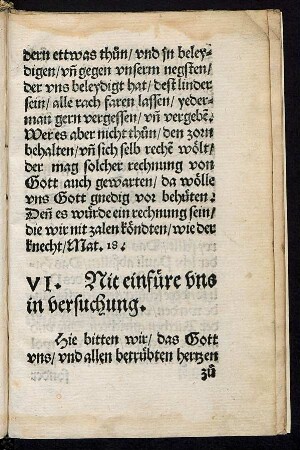 dern ettwas thůn/ vnd jn beley-
digen/ vñ gegen vnserm negsten/
der vns beleydigt hat/ dest linder
sein/ alle rach faren lassen/ yeder-
man gern vergessen/ vñ vergebẽ.
Wer es aber nicht thůn/ den zorn
behalten/ vñ sich selb rechẽ wölt/
der mag solcher rechnung von
Gott auch gewarten/ da wölle
vns Gott gnedig vor behüten.
Deñ es würde ein rechnung sein/
die wir nit zalen köndten/ wie der
knecht/ Mat. 18.
VI. Nit einfüre vns
in versuchung.
Hie bitten wir/ das Gott
vns/ vnd allen betrübten hertzen
zů